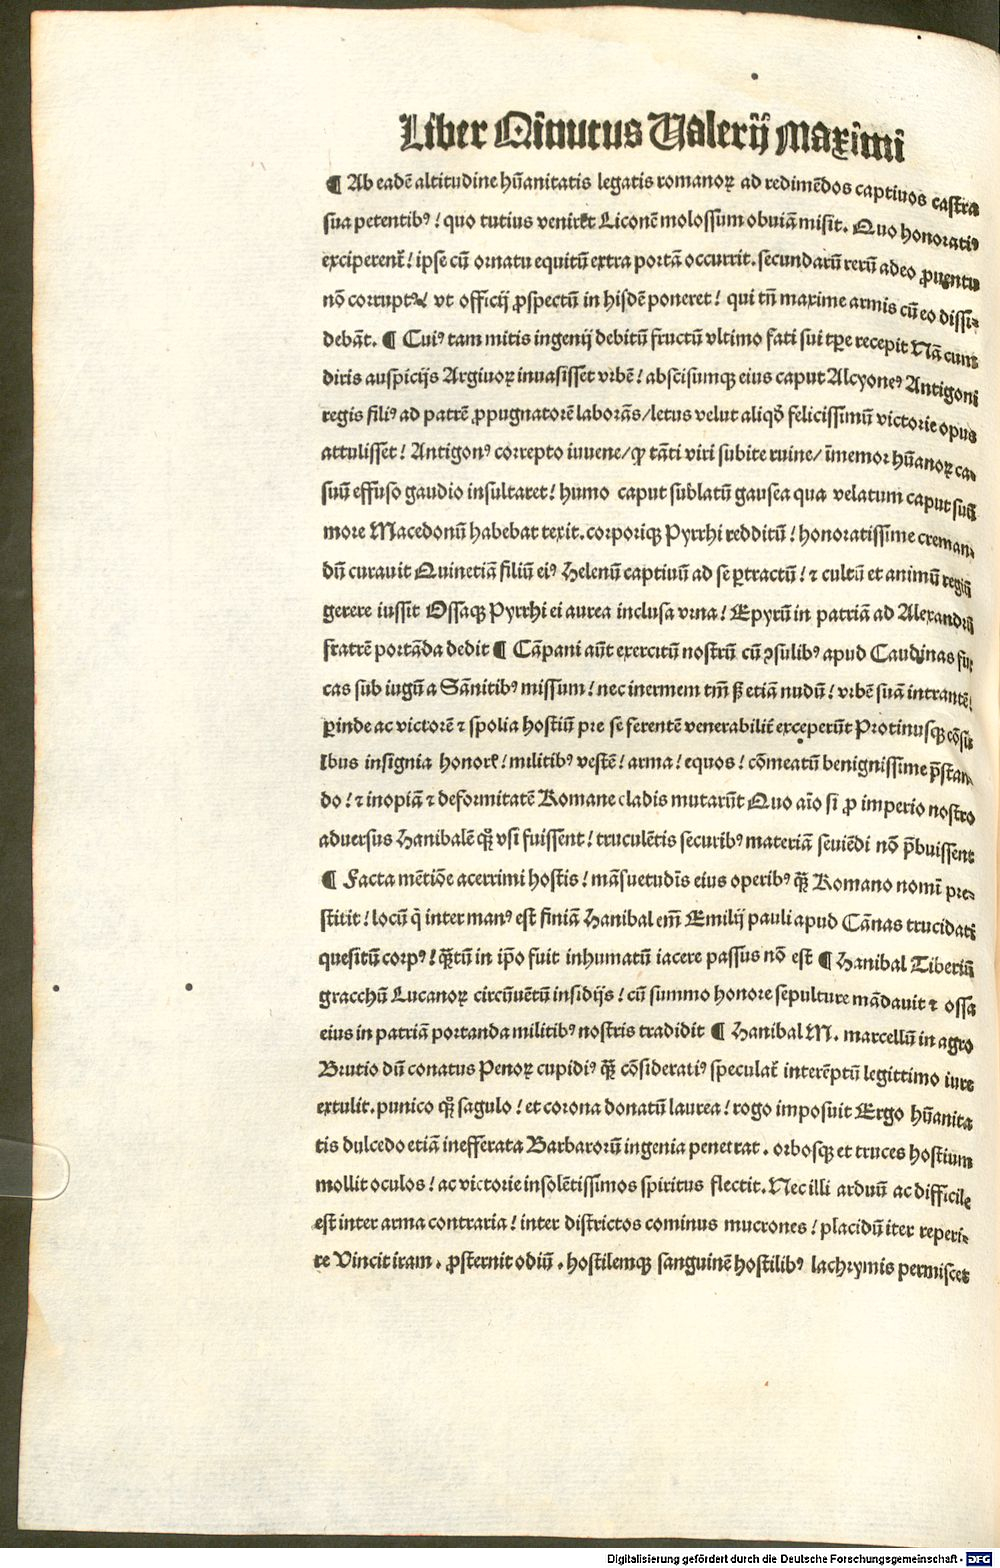 Liber Qiñutus Valerij Maximi
¶ Ab eadē altitudine hūanitatis legatis romanoꝝ ad redimēdos captiuos castra
sua petentibꝰ! quo tutius venirēt Liconē molossum obuiā misit. Quo honoratiꝰ
exciperent̃! ipse cū ornatu equitū extra portā occurrit. secundarū rerū adeo ꝓuentu
nō corruptꝰ! vt officij ꝓspectū in hisdē poneret! qui tñ maxime armis cū eo dissi⸗
debāt. ¶ Cuiꝰ tam mitis ingenij debitū fructū vltimo fati sui tꝑe recepit Nā cum
diris auspicijs Argiuoꝝ inuasisset vrbē! abscisumqꝫ eius caput Alcyoneꝰ Antigoni
regis filiꝰ ad patrē ꝓpugnatorē laborās/letus velut aliqď felicissimū victorie opus
attulisset! Antigonꝰ correpto iuuene/ꝙ tāti viri subite ruine/īmemor hūanoꝝ ca⸗
suū effuso gaudio insultaret! humo caput sublatū gausea qua velatum caput suū
more Macedonū habebat texit. corporiqꝫ Pyrrhi redditū! honoratissime creman⸗
dū curauit Quinetiā filiū eiꝰ Helenū captiuū ad se ꝑtractū! ⁊ cultū et animū regiū
gerere iussit Ossaqꝫ Pyrrhi ei aurea inclusa vrna! Epyrū in patriā ad Alexandrū
fratrē portāda dedit ¶ Cāpani aūt exercitū nostrū cū ꝯsulibꝰ apud Caudinas fur
cas sub iugū a Sānitibꝰ missum! nec inermem tm̄ sꝫ etiā nudū! vrbē suā intrantē!
ꝑinde ac victorē ⁊ spolia hostiū pre se ferentē venerabilit̃ exceperūt Protinusqꝫ cōsu
lbus insignia honorꝭ! militibꝰ vestē! arma! equos! cōmeatū benignissime p̄stan
do! ⁊ inopiā ⁊ deformitatē Romane cladis mutarūt Quo aīo si ꝓ imperio nostro
aduersus Hanibalē qꝫ vsi fuissent! truculētis securibꝰ materiā seuiēdi nō p̄buissent
¶ Facta mētiōe acerrimi hostis! māsuetudīs eius operibꝰ qꝫ Romano nomī pre⸗
stitit! locū q̄ inter manꝰ est finiā Hanibal em̄ Emilij pauli apud Cānas trucidati
quesitū corpꝰ! qꝫtū in ip̄o fuit inhumatū iacere passus nō est ¶ Hanibal Tiberiū
gracchū Lucanoꝝ circūuētū insidijs! cū summo honore sepulture mādauit ⁊ ossa
eius in patriā portanda militibꝰ nostris tradidit ¶ Hanibal M. marcellū in agro
Brutio dū conatus Penoꝝ cupidiꝰ qꝫ cōsideratiꝰ speculat̃ interēptū legittimo iure
extulit. punico qꝫ sagulo! et corona donatū laurea! rogo imposuit Ergo hūanita
tis dulcedo etiā inefferata Barbarorū ingenia penetrat. orbosqꝫ et truces hostium
mollit oculos! ac victorie insolētissimos spiritus flectit. Nec illi arduū ac difficile
est inter arma contraria! inter districtos cominus mucrones! placidū iter reperi⸗
re Vincit iram. ꝓsternit odiū. hostilemqꝫ sanguinē hostilibꝰ lachrymis permiscet
Digitalisierung gefördert durch die Deutsche Forschungsgemeinschaft - DFG